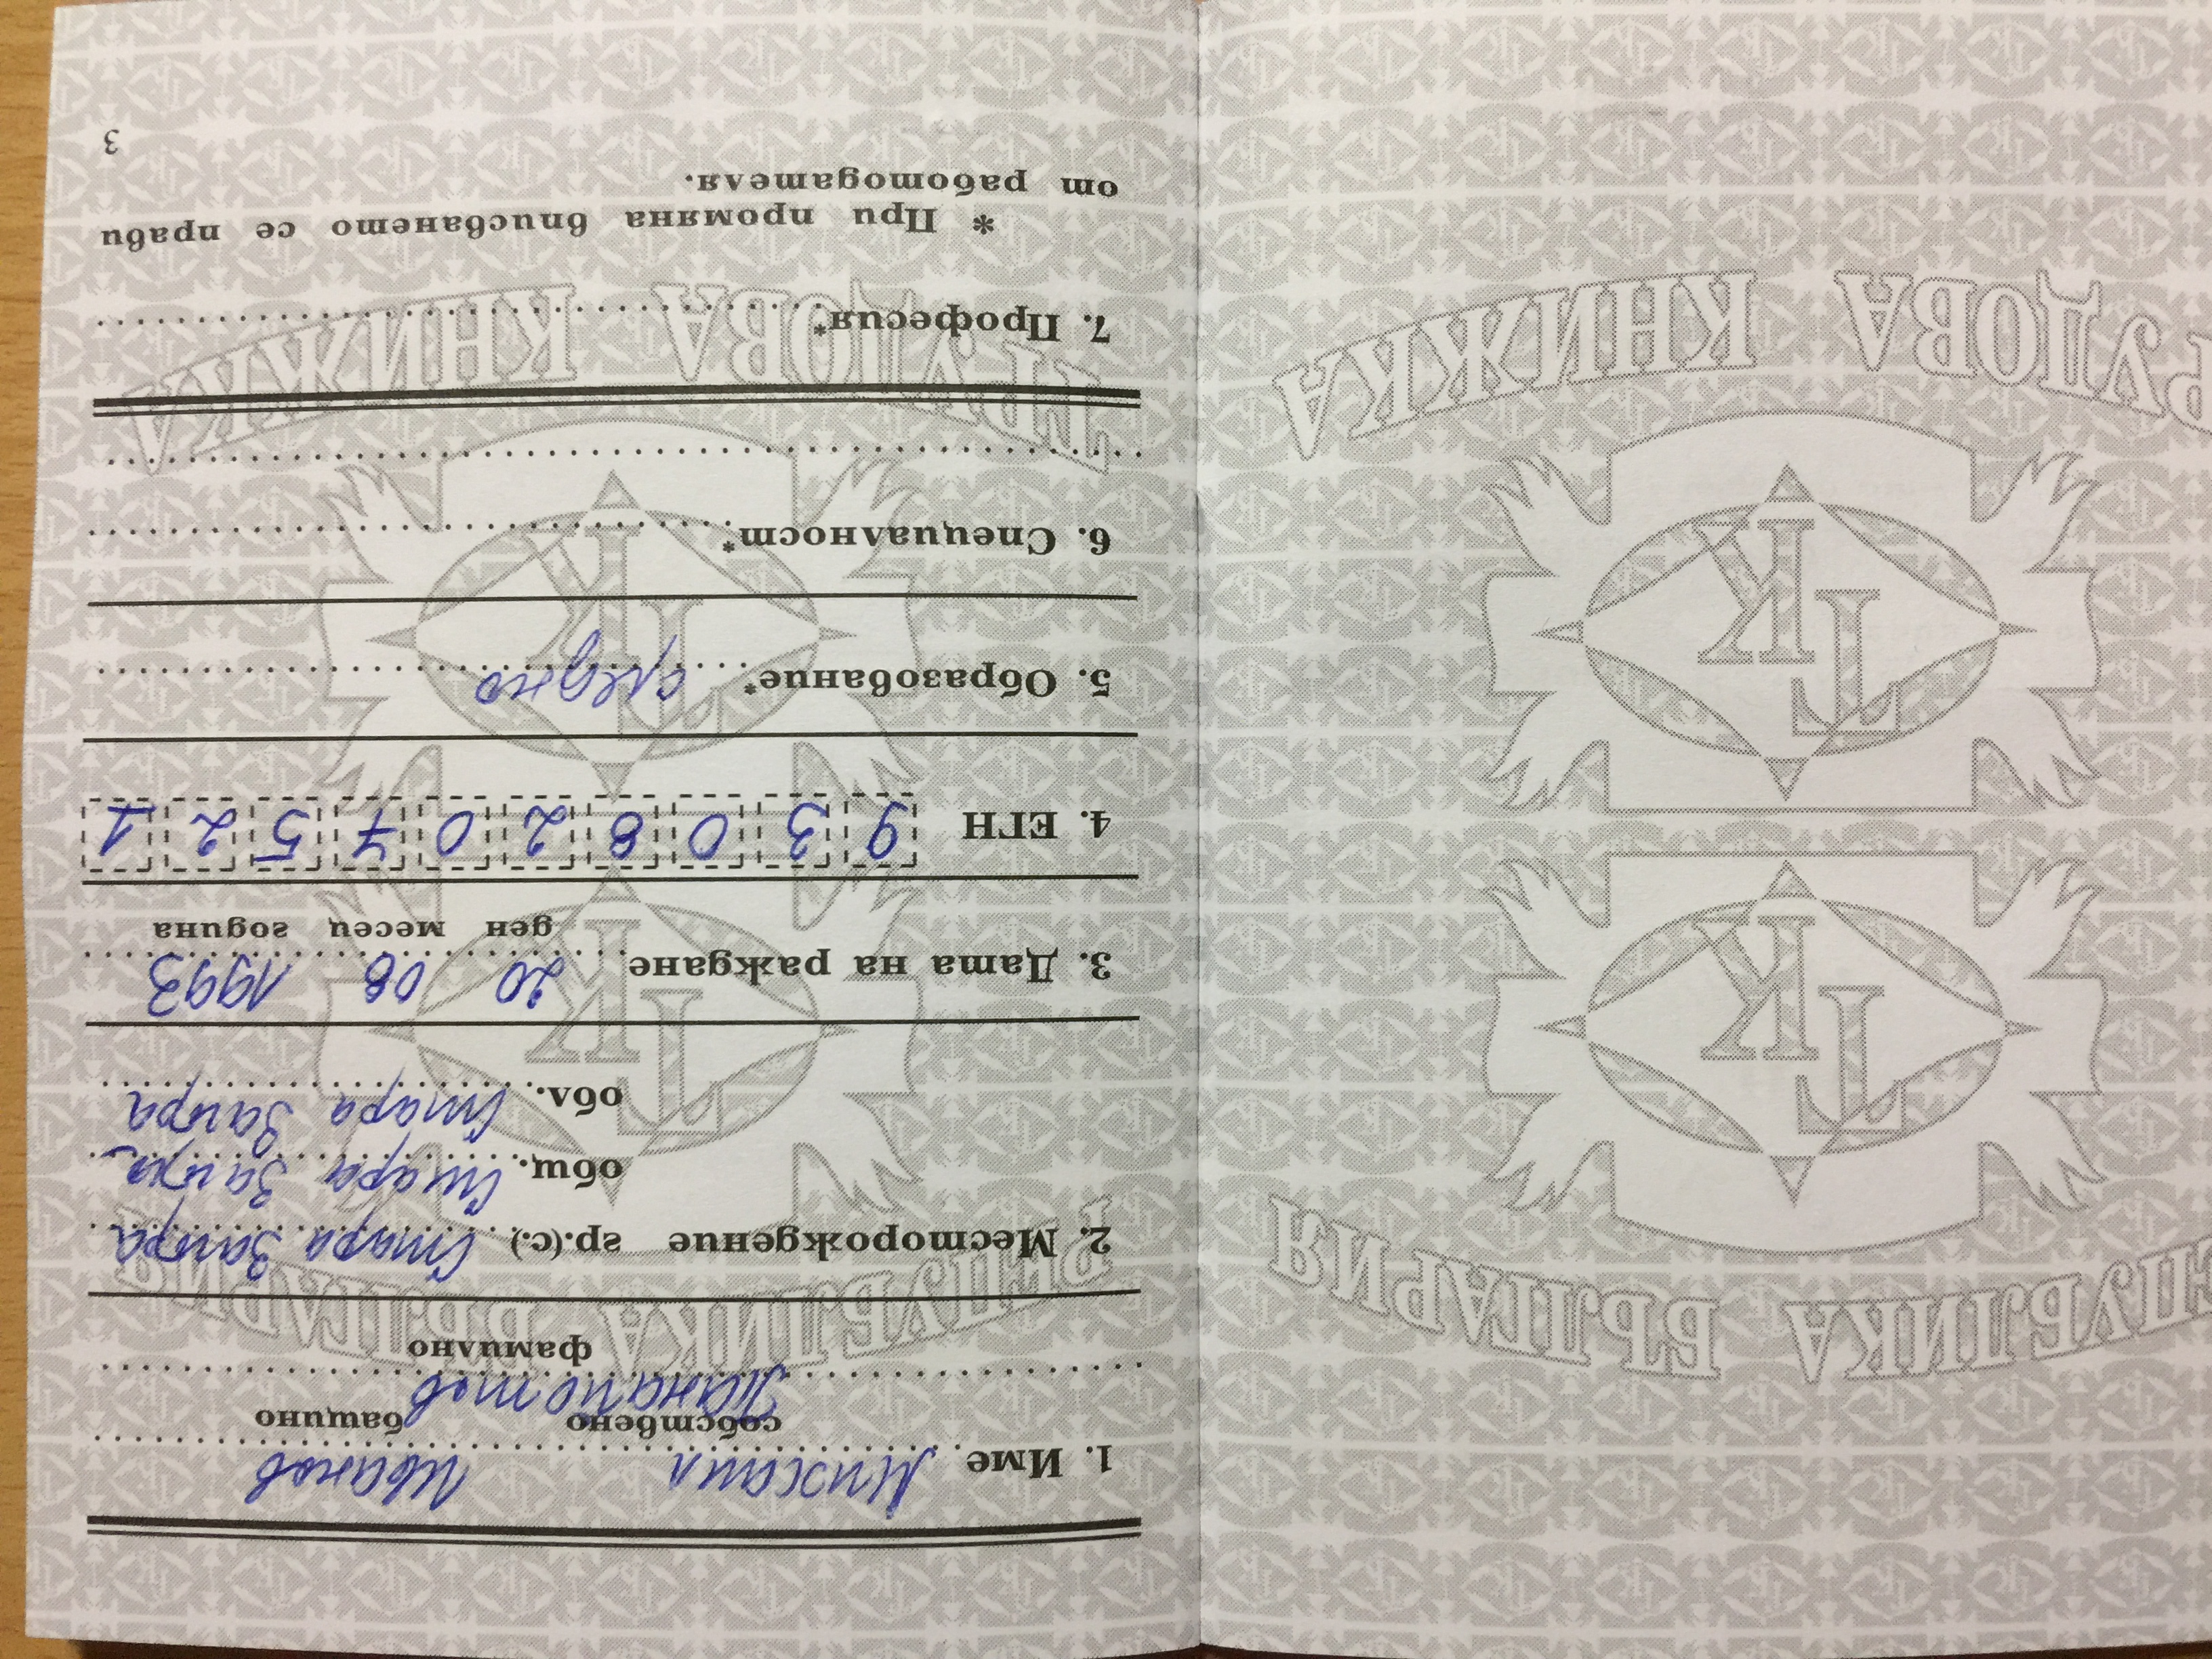 РЕПУБЛИКА БЪЛГАРИЯ
ТК
ТК
ТРУДОВА КНИЖКА
1. Име Михаил Иванов
собствено бащино
Панайотов
фамилно
РЕПУБЛИКА БЪЛГАРИЯ
2. Месторождение гр.(с.) Стара Загора
общ. Стара Загора
обл. Стара Загора
3. Дата на раждане 20 08 1993
ден месец година
ТК
4. ЕГН 9308207521
5. Образование* средно
ТК
6. Специалност*
7. Професия*
ТРУДОВА КНИЖКА
* При промяна вписването се прави
от работодателя.
3